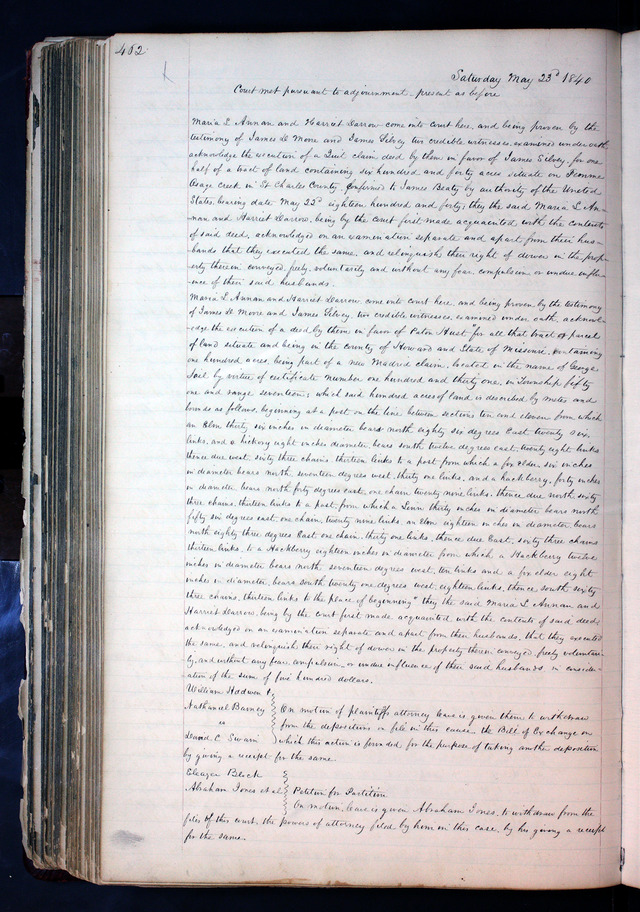 462.
Saturday May 23d 1840
Court met pursuant to adjournment - present as before
Maria L Annan and Harriet Darrow come into court here, and being proven by the
testimony of James D More and James Silvey two credible witnesses, examined under oath
acknowledge the execution of a Quit claim deed by them in favor of James Silvey, for one
half of a tract of land containing six hundred and forty acres situate on Femme
Osage creek in St Charles County, Confirmed to James Beaty by authority of the United
States, bearing date May 22d eighteen hundred and forty; they the said Maria L An-
nan and Harriet Darrow, being by the court first made acquainted with the contents
of said deed, acknowledged on an examination separate and apart from their hus-
bands that they executed the same, and relinquish their right of dower in the prop-
erty therein conveyed, freely, voluntarily and without any fear, compulsion or undue influ-
ence of their said husbands.
Maria L Annan and Harriet Darrow, come into court here, and being proven by the testimony
of James D Moore and James Silvey, two credible witnesses, examined under oath, acknowl-
edge the execution of a deed by them in favor of Paton Hust "for all that tract or parcel
of land situate and being in the county of Howard and State of Missouri, containing
one hundred acres, being part of a new Madrid claim, located in the name of George
by virtue of certificate number one hundred and thirty one, in Township fifty
one and range seventeen; which said hundred acres of land is described by metes and
bounds as follows, beginning at a post on the line between sections ten and eleven from which
an Elm thirty six inches in diameter bears north eighty six degrees East, twenty six
links, and a hickory eight inches diameter, bears south twelve degrees east, twenty eight links
thence due west, sixty three chains thirteen links to a post from which a fox elder, six inches
in diameter bears north seventeen degrees west, thirty one links, and a hackberry, forty inches
in diameter bears north forty degrees east, one chain, twenty nine links, thence due north, sixty
three chains, thirteen links to a post, from which a Linn thirty inches in diameter bears north
fifty six degrees east, one chain, twenty nine links, an Elm, eighteen inches in diameter, bears
north eighty three degrees East one chain, thirty one links, thence due East, sixty three chains
thirteen links, to a Hackberry eighteen inches in diameter from which a Hackberry twelve
inches in diameter bears north seventeen degrees west, ten links and a fox elder eight
inches in diameter, bears south twenty one degrees west, eighteen links, thence, south sixty
three chains, thirteen links to the place of beginning" they the said Maria L Annan and
Harriet Darrow, being by the court first made acquainted with the contents of said deed,
acknowledged on an examination separate and apart from their husbands, that they executed
the same, and relinquish their right of dower in the property therein conveyed, freely voluntari-
ly, and without any fear, compulsion, or undue influence of their said husbands, in consider-
ation of the sum of five hundred dollars.
William Hadwen &
Nathaniel Barney
vs
David C. Swain
On motion of plaintiffs attorney leave is given them to withdraw
from the depositions on file in this cause, the Bill of Exchange on
which this action is founded, for the purpose of taking another deposition
by giving a receipt for the same.
Eleazer Block
Abraham Jones et al
Petition for Partition
On motion, leave is given Abraham Jones, to withdraw from the
files of this court, the powers of attorney filed by him in this case, by his giving a receipt
for the same.